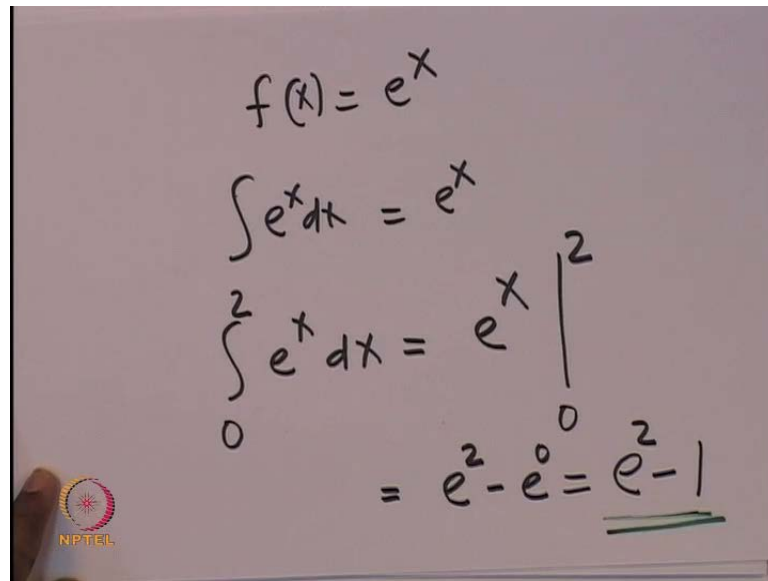 f(x) = e^x
∫ e^x dx = e^x
∫_0^2 e^x dx = e^x |_0^2
= e^2 - e^0 = e^2 - 1
NPTEL